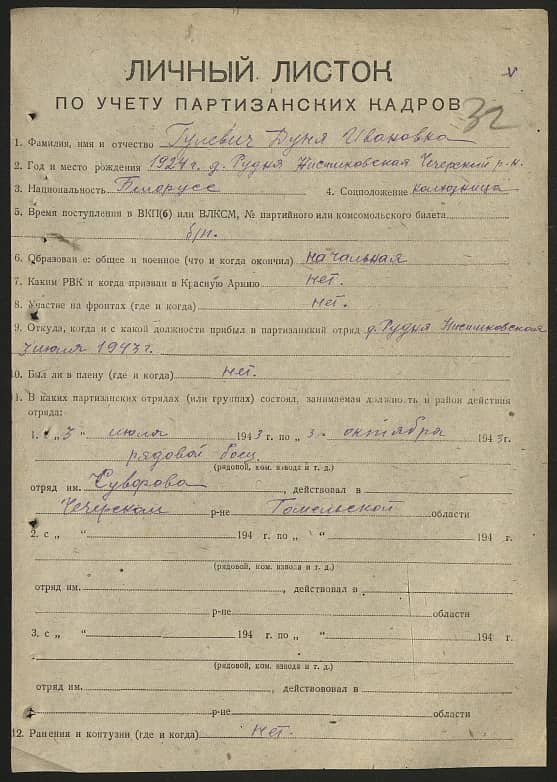 ЛИЧНЫЙ ЛИСТОК
ПО УЧЕТУ ПАРТИЗАНСКИХ КАДРОВ 32
1. Фамилия, имя и отчество Гулевич Дуня Ивановна
2. Год и место рождения 1924 г. д. Рудня Нисимковская Чечерский р-н.
3. Национальность Белорусс 4. Соцположение колхозница
5. Время поступления в ВКП(б) или ВЛКСМ, № партийного или комсомольского билета
б/п.
6. Образован е: общее и военное (что и когда окончил) начальная
7. Каким РВК и когда призван в Красную Армию нет.
8. Участие на фронтах (где и когда) нет.
9. Откуда, когда и с какой должности прибыл в партизанкий отряд д. Рудня Нисимковская
3 июля 1943 г.
10. Был ли в плену (где и когда) нет.
1. В каких партизанских отрядах (или группах) состоял, занимаемая должность и район действия
отряда:
1. с „ 3 " июля 1943 г. по „ 3 " октября 1943 г.
рядовой боец
(рядовой, ком. взвода и т. д.)
отряд им. Суворова, действовал в
Чечерском р-не Гомельской области
2. с „ " 194 г. по „ " 194 г.
(рядовой, ком. взвода и т. д.)
отряд им. , действовал в
р-не области
3. с „ " 194 г. по „ " 194 г.
(рядовой, ком. взвода и т. д.)
отряд им. , действововал в
р-не области
12. Ранения и контузии (где и когда) нет.